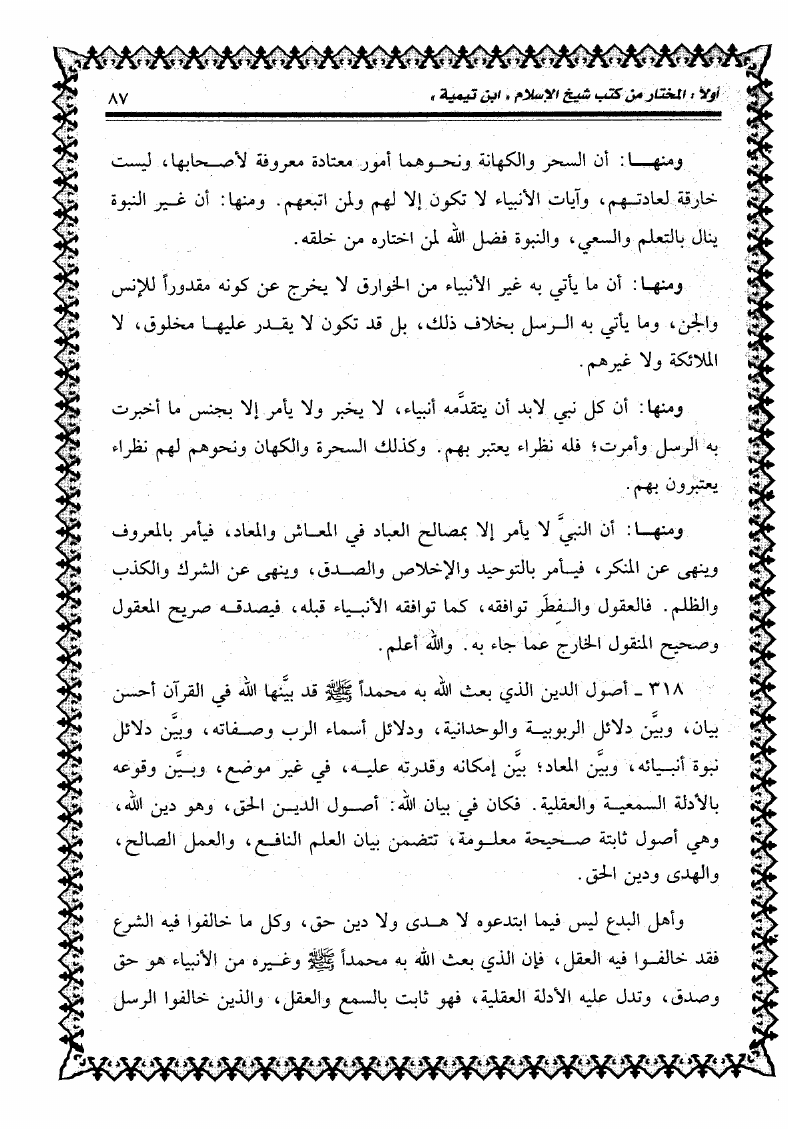 أولاً : المختار من كتب شيخ الإسلام « ابن تيمية » ٨٧
ومنهـا: أن السحر والكهانة ونحـوهما أمور معتادة معروفة لأصـحابها، ليست
خارقة لعادتـهم، وآيات الأنبياء لا تكون إلا لهم ولمن اتبعهم. ومنها: أن غـير النبوة
ينال بالتعلم والسعي، والنبوة فضل الله لمن اختاره من خلقه.
ومنهـا: أن ما يأتي به غير الأنبياء من الخوارق لا يخرج عن كونه مقدوراً للإنس
والجن، وما يأتي به الـرسل بخلاف ذلك، بل قد تكون لا يقـدر عليهـا مخلوق، لا
الملائكة ولا غيرهم.
ومنها: أن كل نبي لابد أن يتقدَّمه أنبياء، لا يخبر ولا يأمر إلا بجنس ما أخبرت
به الرسل وأمرت؛ فله نظراء يعتبر بهم. وكذلك السحرة والكهان ونحوهم لهم نظراء
يعتبرون بهم.
ومنهـا: أن النبيَّ لا يأمر إلا بمصالح العباد في المعـاش والمعاد، فيأمر بالمعروف
وينهى عن المنكر، فيـأمر بالتوحيد والإخلاص والصـدق، وينهى عن الشرك والكذب
والظلم. فالعقول والـفِطَر توافقه، كما توافقه الأنبـياء قبله، فيصدقـه صريح المعقول
وصحيح المنقول الخارج عما جاء به. والله أعلم.
٣١٨ ـ أصول الدين الذي بعث الله به محمداً ﷺ قد بيَّنها الله في القرآن أحسن
بيان، وبيَّن دلائل الربوبيـة والوحدانية، ودلائل أسماء الرب وصـفاته، وبيَّن دلائل
نبوة أنبـيائه، وبيَّن المعاد؛ بيَّن إمكانه وقدرته عليـه، في غير موضع، وبـيَّن وقوعه
بالأدلة السمعيـة والعقلية. فكان في بيان الله: أصـول الديـن الحق، وهو دين الله،
وهي أصول ثابتة صـحيحة معلـومة، تتضمن بيان العلم النافـع، والعمل الصالح،
والهدى ودين الحق.
وأهل البدع ليس فيما ابتدعوه لا هـدى ولا دين حق، وكل ما خالفوا فيه الشرع
فقد خالفـوا فيه العقل، فإن الذي بعث الله به محمداً ﷺ وغيـره من الأنبياء هو حق
وصدق، وتدل عليه الأدلة العقلية، فهو ثابت بالسمع والعقل، والذين خالفوا الرسل